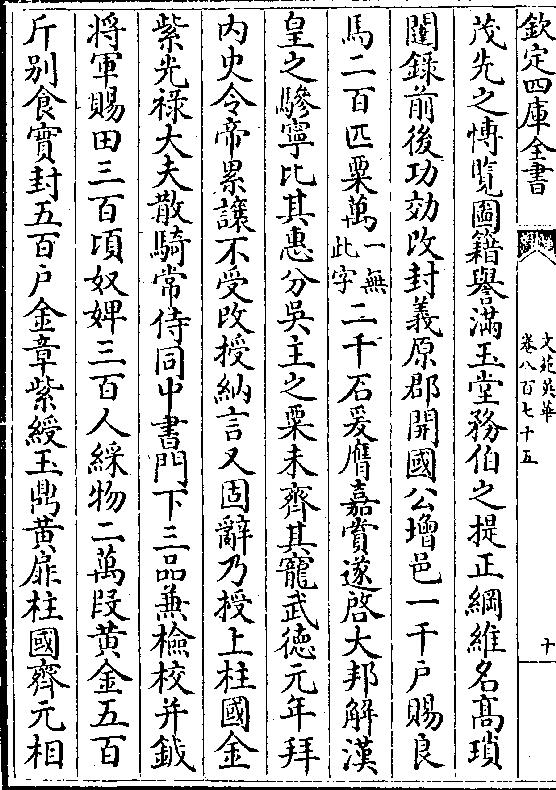 欽定四庫全書
文苑英華
卷八百七十五
十
茂先之博覧圖籍譽滿玉堂務伯之提正綱維名髙瑣
闥録前後功効改封義原郡開國公增邑一千戸賜良
馬二百匹粟萬一無此字二千石爰膺嘉賞遂啓大邦解漢
皇之驂寧比其惠分吳主之粟未齊其寵武德元年拜
内史令帝累讓不受改授納言又固辭乃授上柱國金
紫光禄大夫散騎常侍同中書門下三品兼檢校并鉞
將軍賜田三百頃奴婢三百人綵物二萬段黄金五百
斤别食實封五百戸金章紫綬玉鼎黄扉柱國齊元相